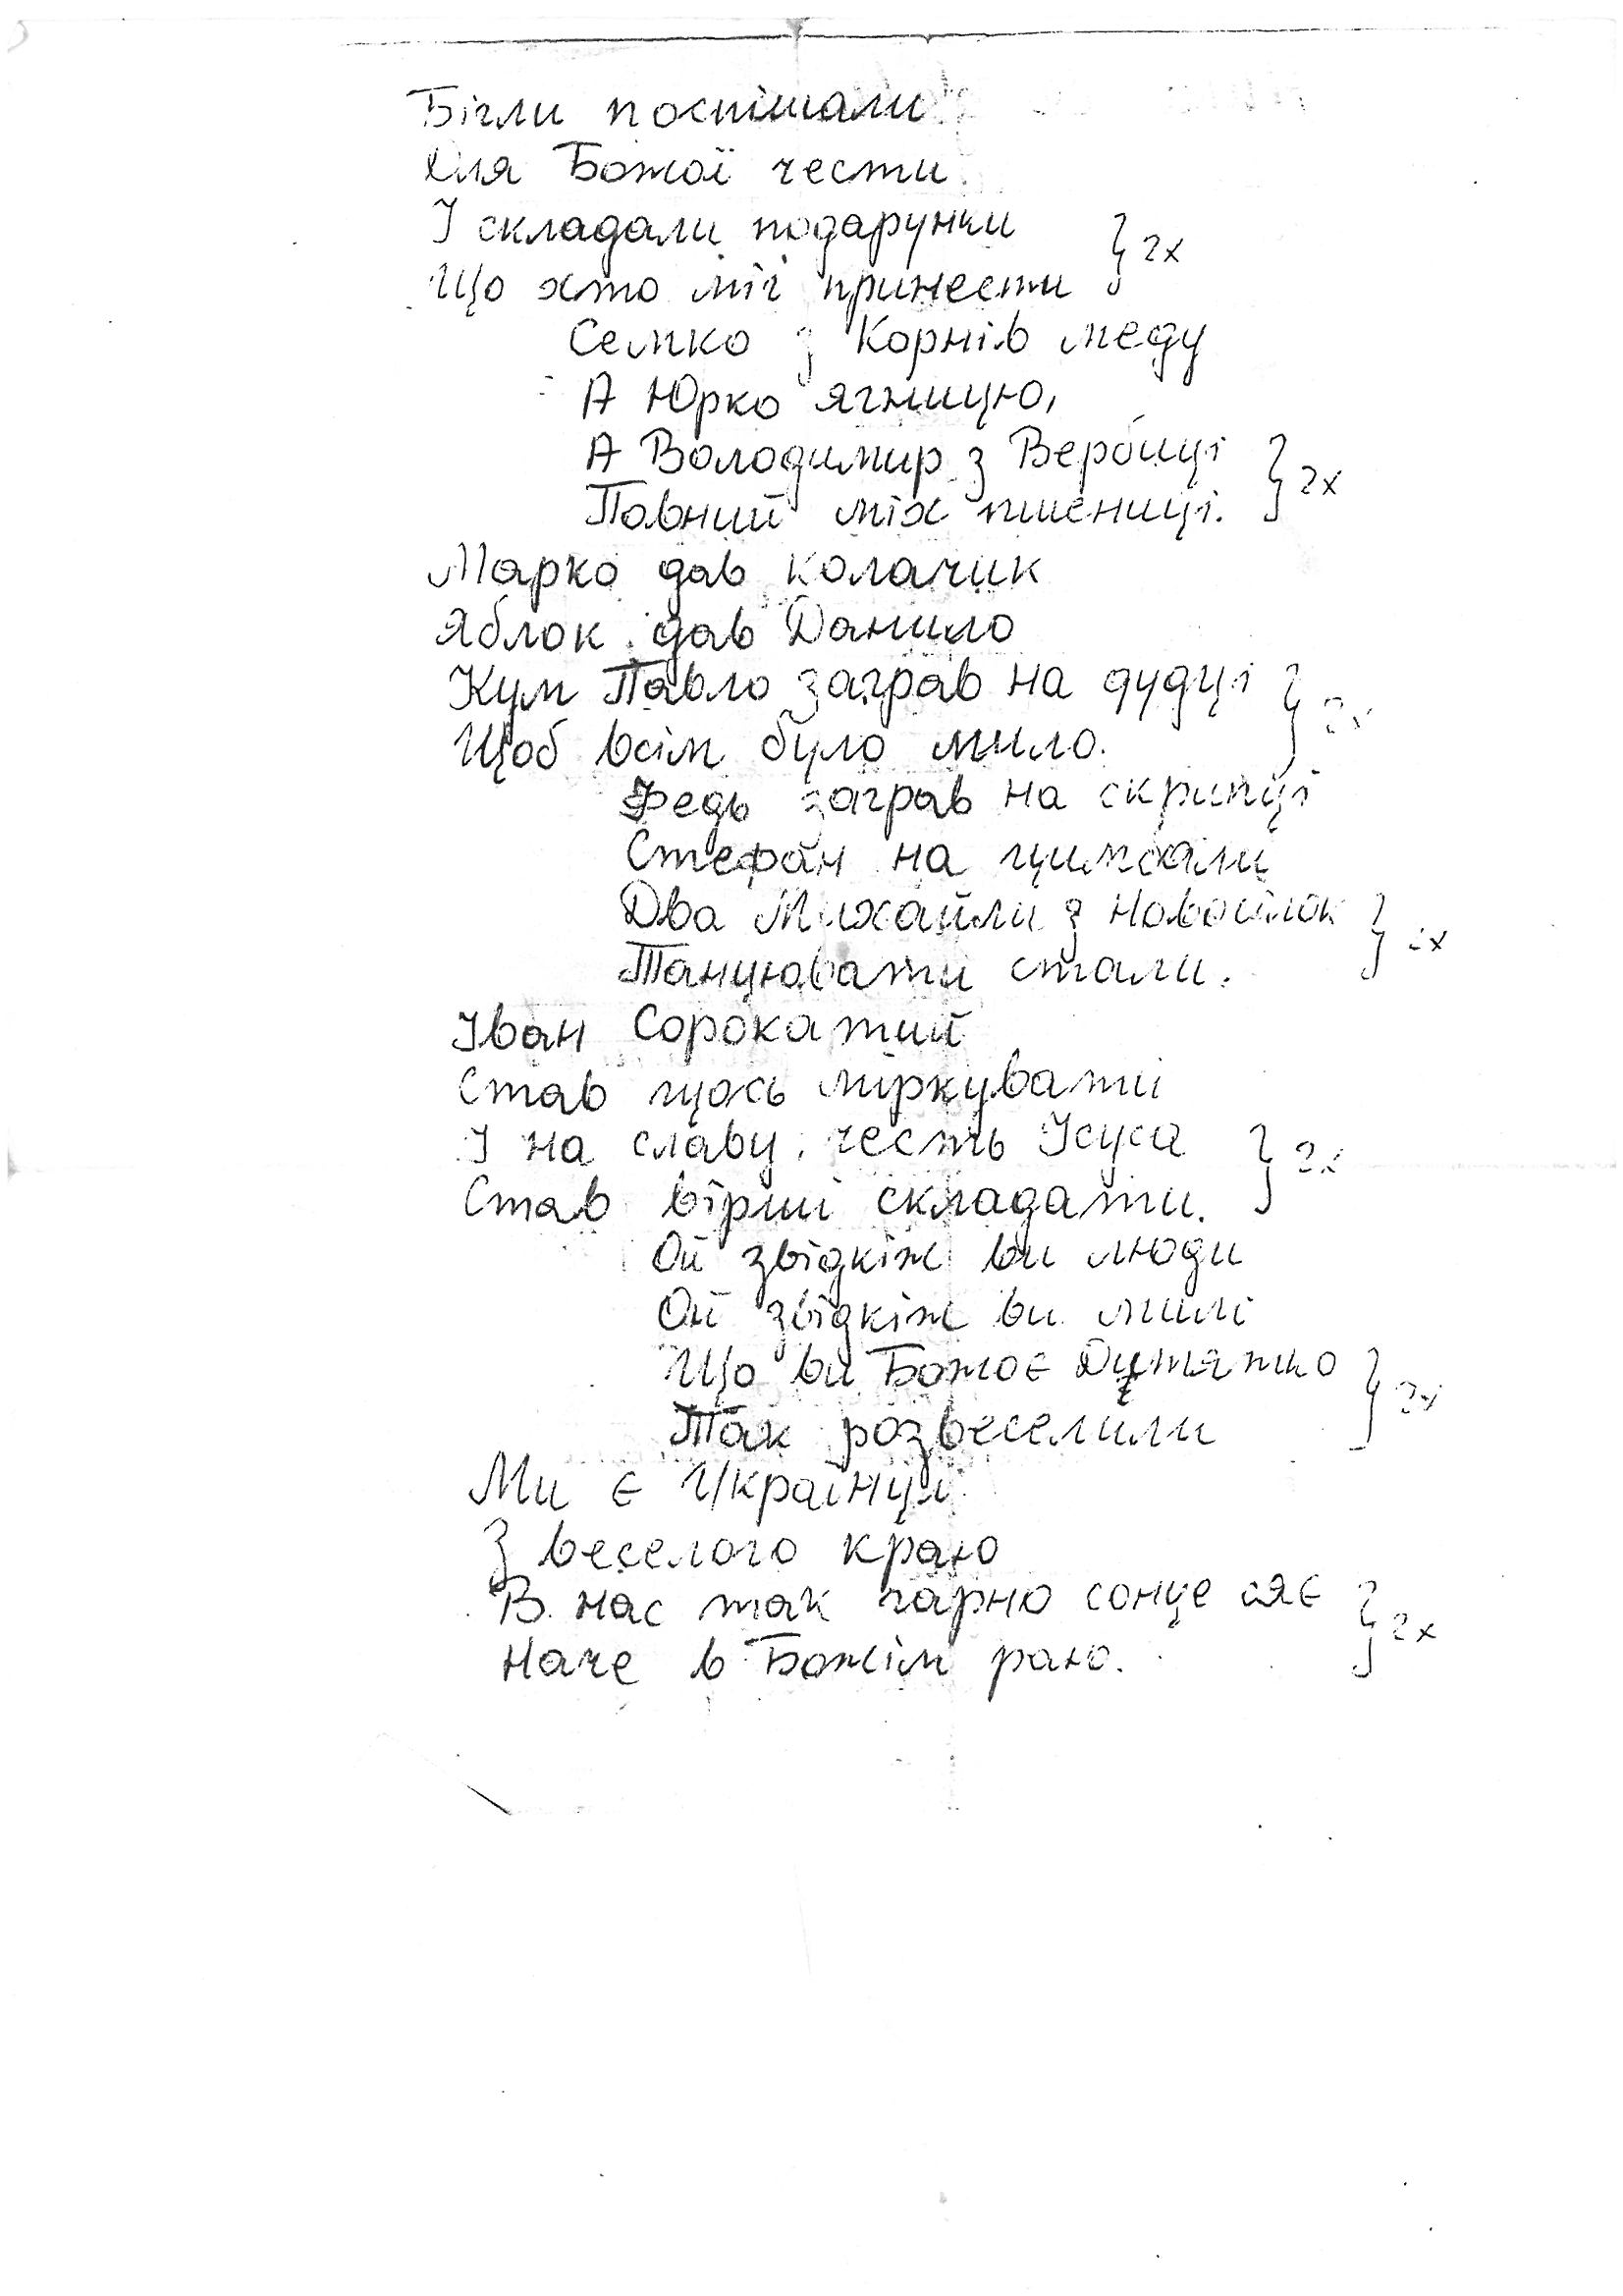 Бігли поспішали
Для Божої чести.
І складали подарунки } 2х
Що хто міг принести
Семко з Корнів меду
А Юрко ягницю,
А Володимир з Вербиці } 2х
Повний міх пшениці.
Марко дав колачик
Яблок дав Данило
Кум Павло заграв на дудці } 2х
Щоб всім було мило.
Федь заграв на скрипці
Стефан на цимбали
Два Михайли з Новосілок } 2х
Танцювати стали.
Іван Сорокатий
Став щось міркувати
І на славу, честь Ісуса } 2х
Став вірші складати.
Ой звідкіж ви люди
Ой звідкіж ви милі
Що ви Божоє Дитятко } 2х
Так розвеселили
Ми є Українці
З веселого краю
В нас так гарно сонце сяє } 2х
Наче в Божім раю.